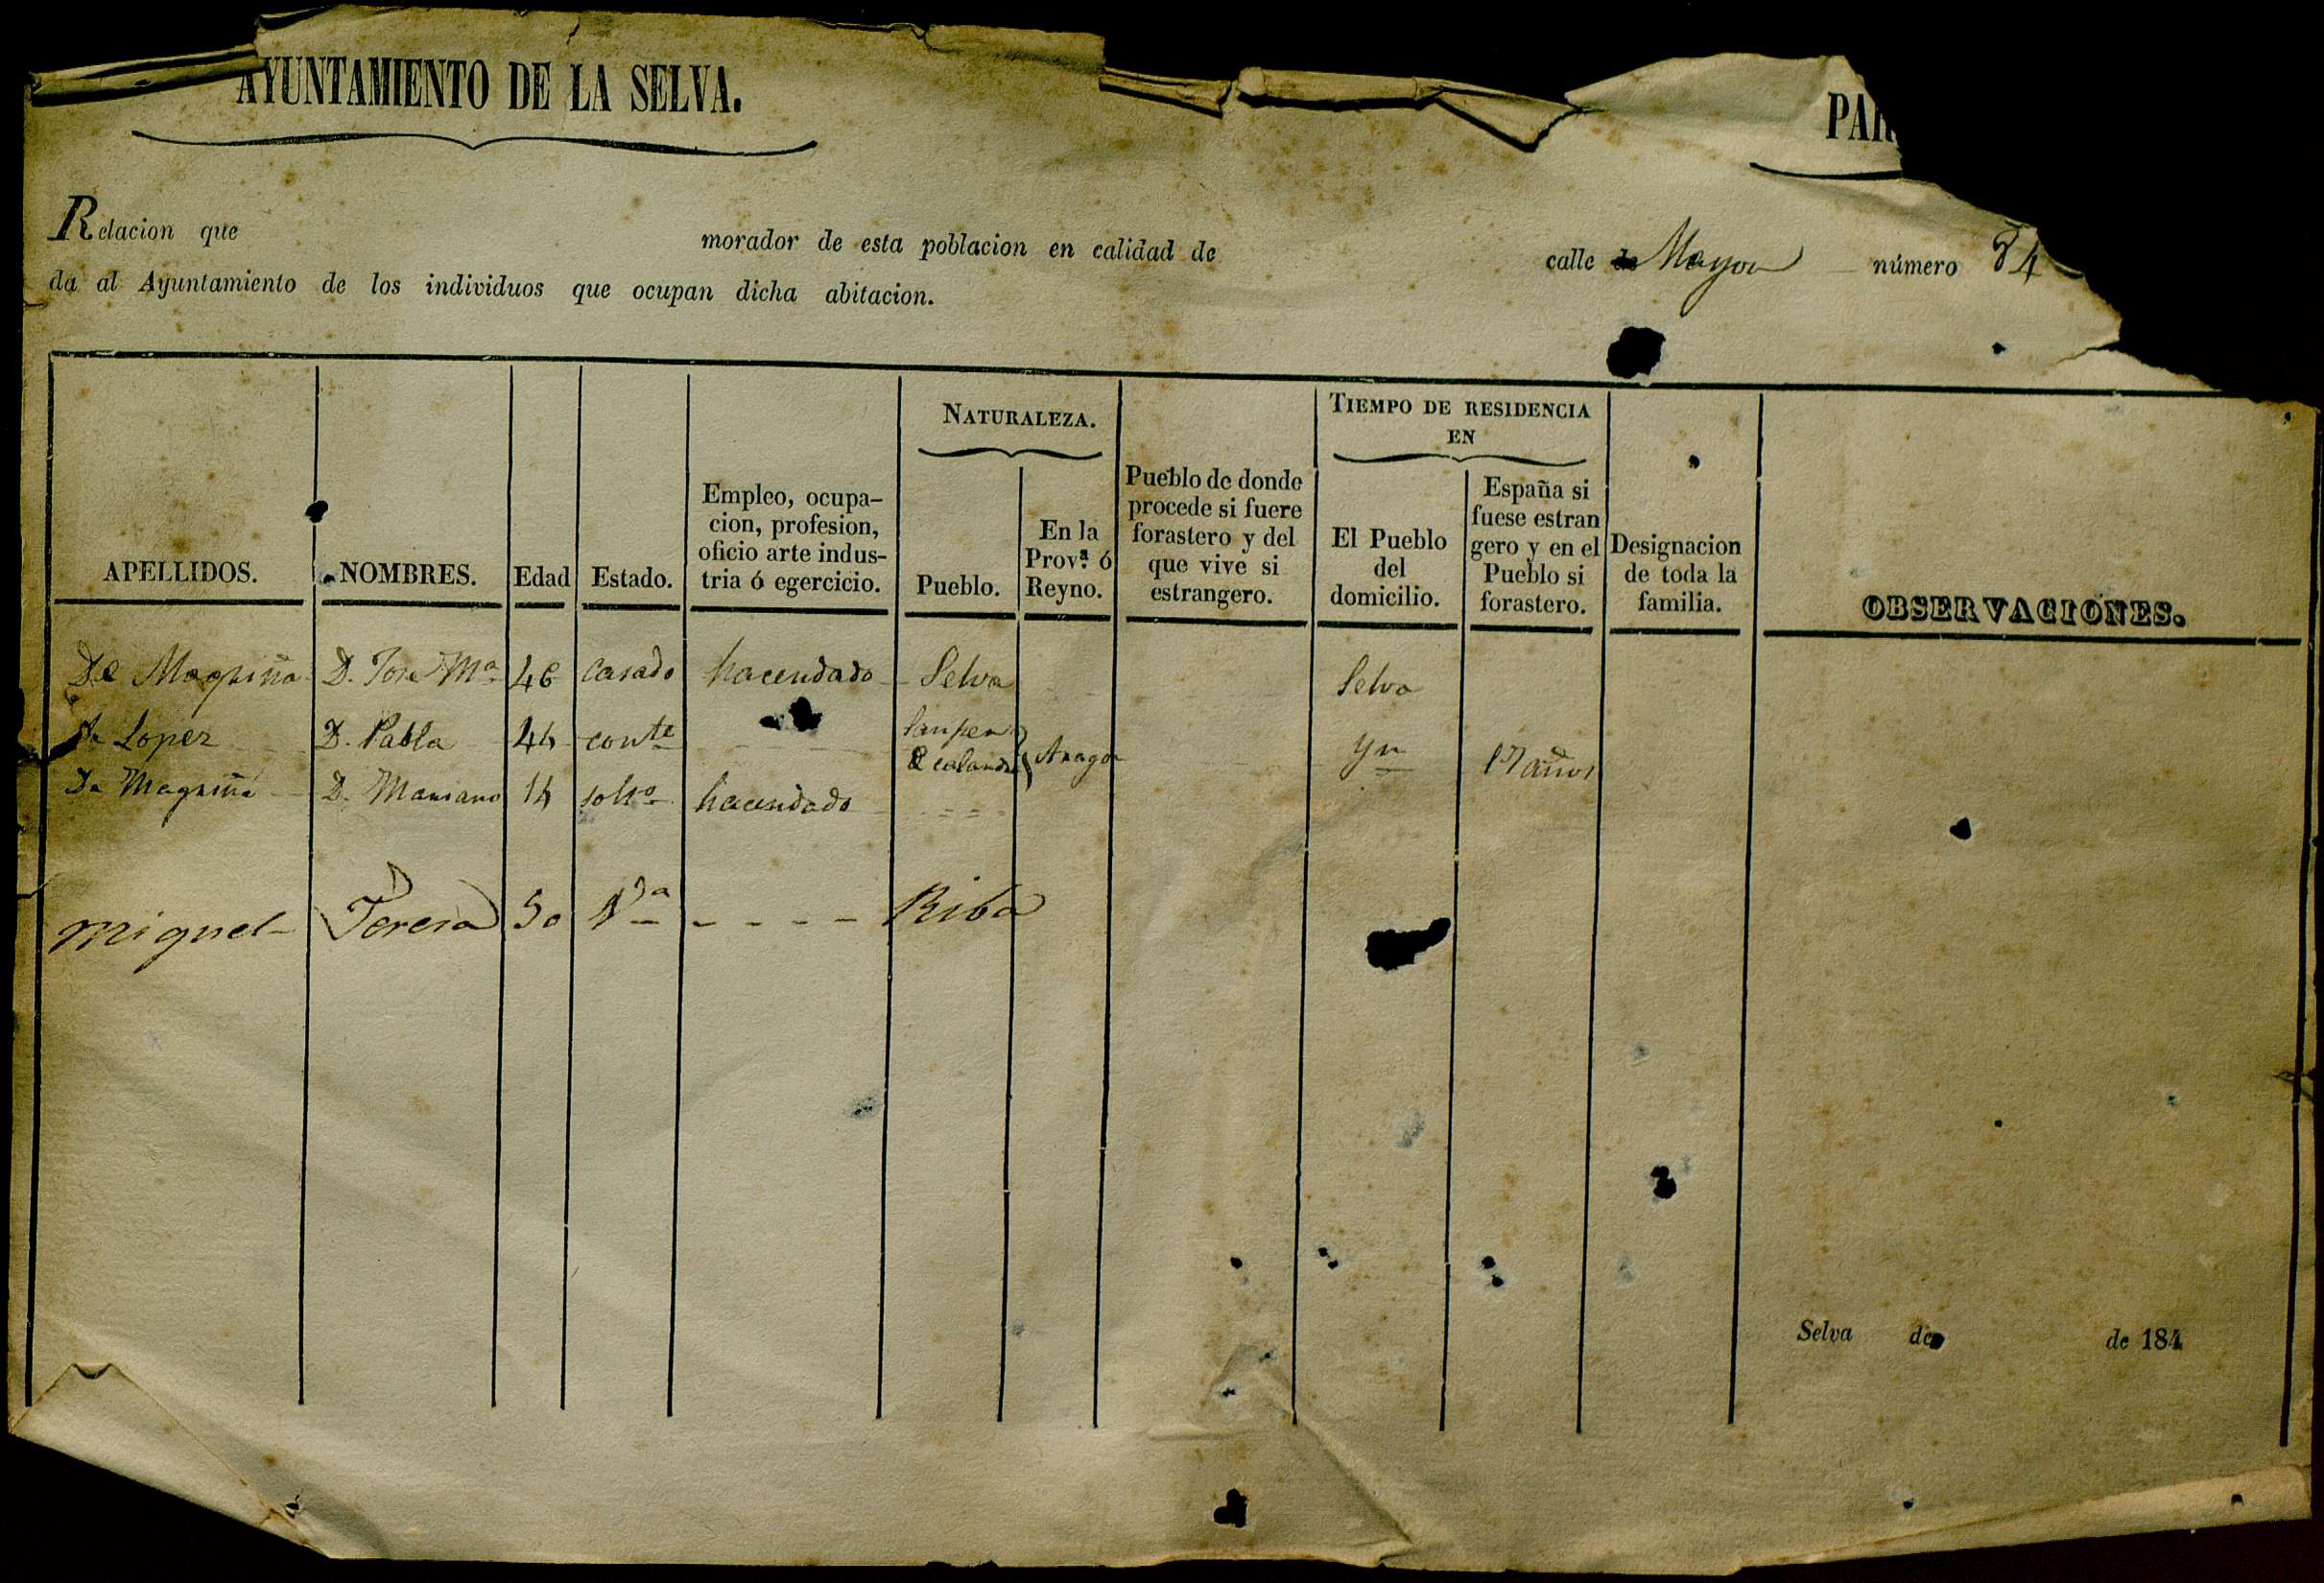 AYUNTAMIENTO DE LA SELVA.
PAR
Relacion que morador de esta poblacion en calidad de calle de Mayor número 84
da al Ayuntamiento de los individuos que ocupan dicha abitacion.
APELLIDOS. NOMBRES. Edad Estado. Empleo, ocupa-
cion, profesion,
oficio arte indus-
tria ó egercicio.
NATURALEZA.
Pueblo. En la
Prov.ª ó
Reyno.
Pueblo de donde
procede si fuere
forastero y del
que vive si
estrangero.
TIEMPO DE RESIDENCIA
EN
El Pueblo
del
domicilio.
España si
fuese estran
gero y en el
Pueblo si
forastero.
Designacion
de toda la
familia.
OBSERVACIONES.
De Magriña D. Jose Mª 46 Casado hacendado Selva Selva
De Lopez D. Pabla 44 conte Samper
de calanda Aragon Yn 17 años
De Magriña D. Mariano 14 solto hacendado = = =
Miguel Teresa 50 Vda - - - - Riba
Selva de de 184